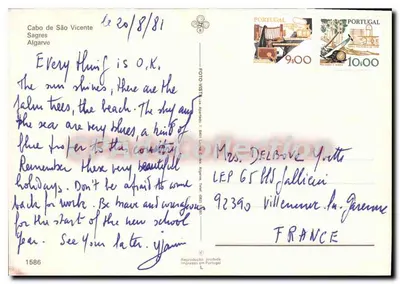 Cabo de São Vicente
Sagres
Algarve
le 20/8/81
Every thing is O.K.
The sun shines, there are the
palm trees, the beach. The sky and
the sea are very blues, a kind of
blue proper to the country
Remember these very beautiful
holidays. Don't be afraid to come
back for work. Be brave and courageous
for the start of the new school
year. See you later.
1586
PORTUGAL
9$00
PORTUGAL
10$00
Mrs. DELBOVE
LEP 65
92390 Villeneuve-la-Garenne
FRANCE